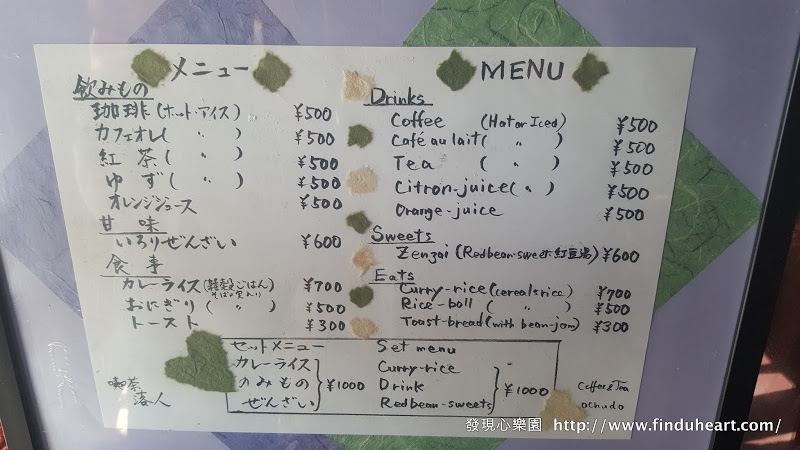 メニュー
飲みもの
珈琲(ホット・アイス) ¥500
カフェオレ( 〃 ) ¥500
紅茶( 〃 ) ¥500
ゆず( 〃 ) ¥500
オレンジジュース ¥500
甘味
いろりぜんざい ¥600
食事
カレーライス(雑穀ごはん ¥700
おにぎり( 〃 ) ¥500
トースト ¥300
MENU
Drinks
Coffee (Hot or Iced) ¥500
Café au lait( 〃 ) ¥500
Tea ( 〃 ) ¥500
Citron-juice( 〃 ) ¥500
Orange-juice ¥500
Sweets
Zenzai (Redbean-sweet 紅豆湯) ¥600
Eats
Curry-rice (cereals rice) ¥700
Rice-boll ( 〃 ) ¥500
Toast-bread (with bean-jam) ¥300
セットメニュー
カレーライス
のみもの ¥1000
ぜんざい
Set menu
Curry-rice
Drink ¥1000
Redbean-sweets
喫茶
落人
Coffee&Tea
ochudo
發現心樂園 http://www.finduheart.com/